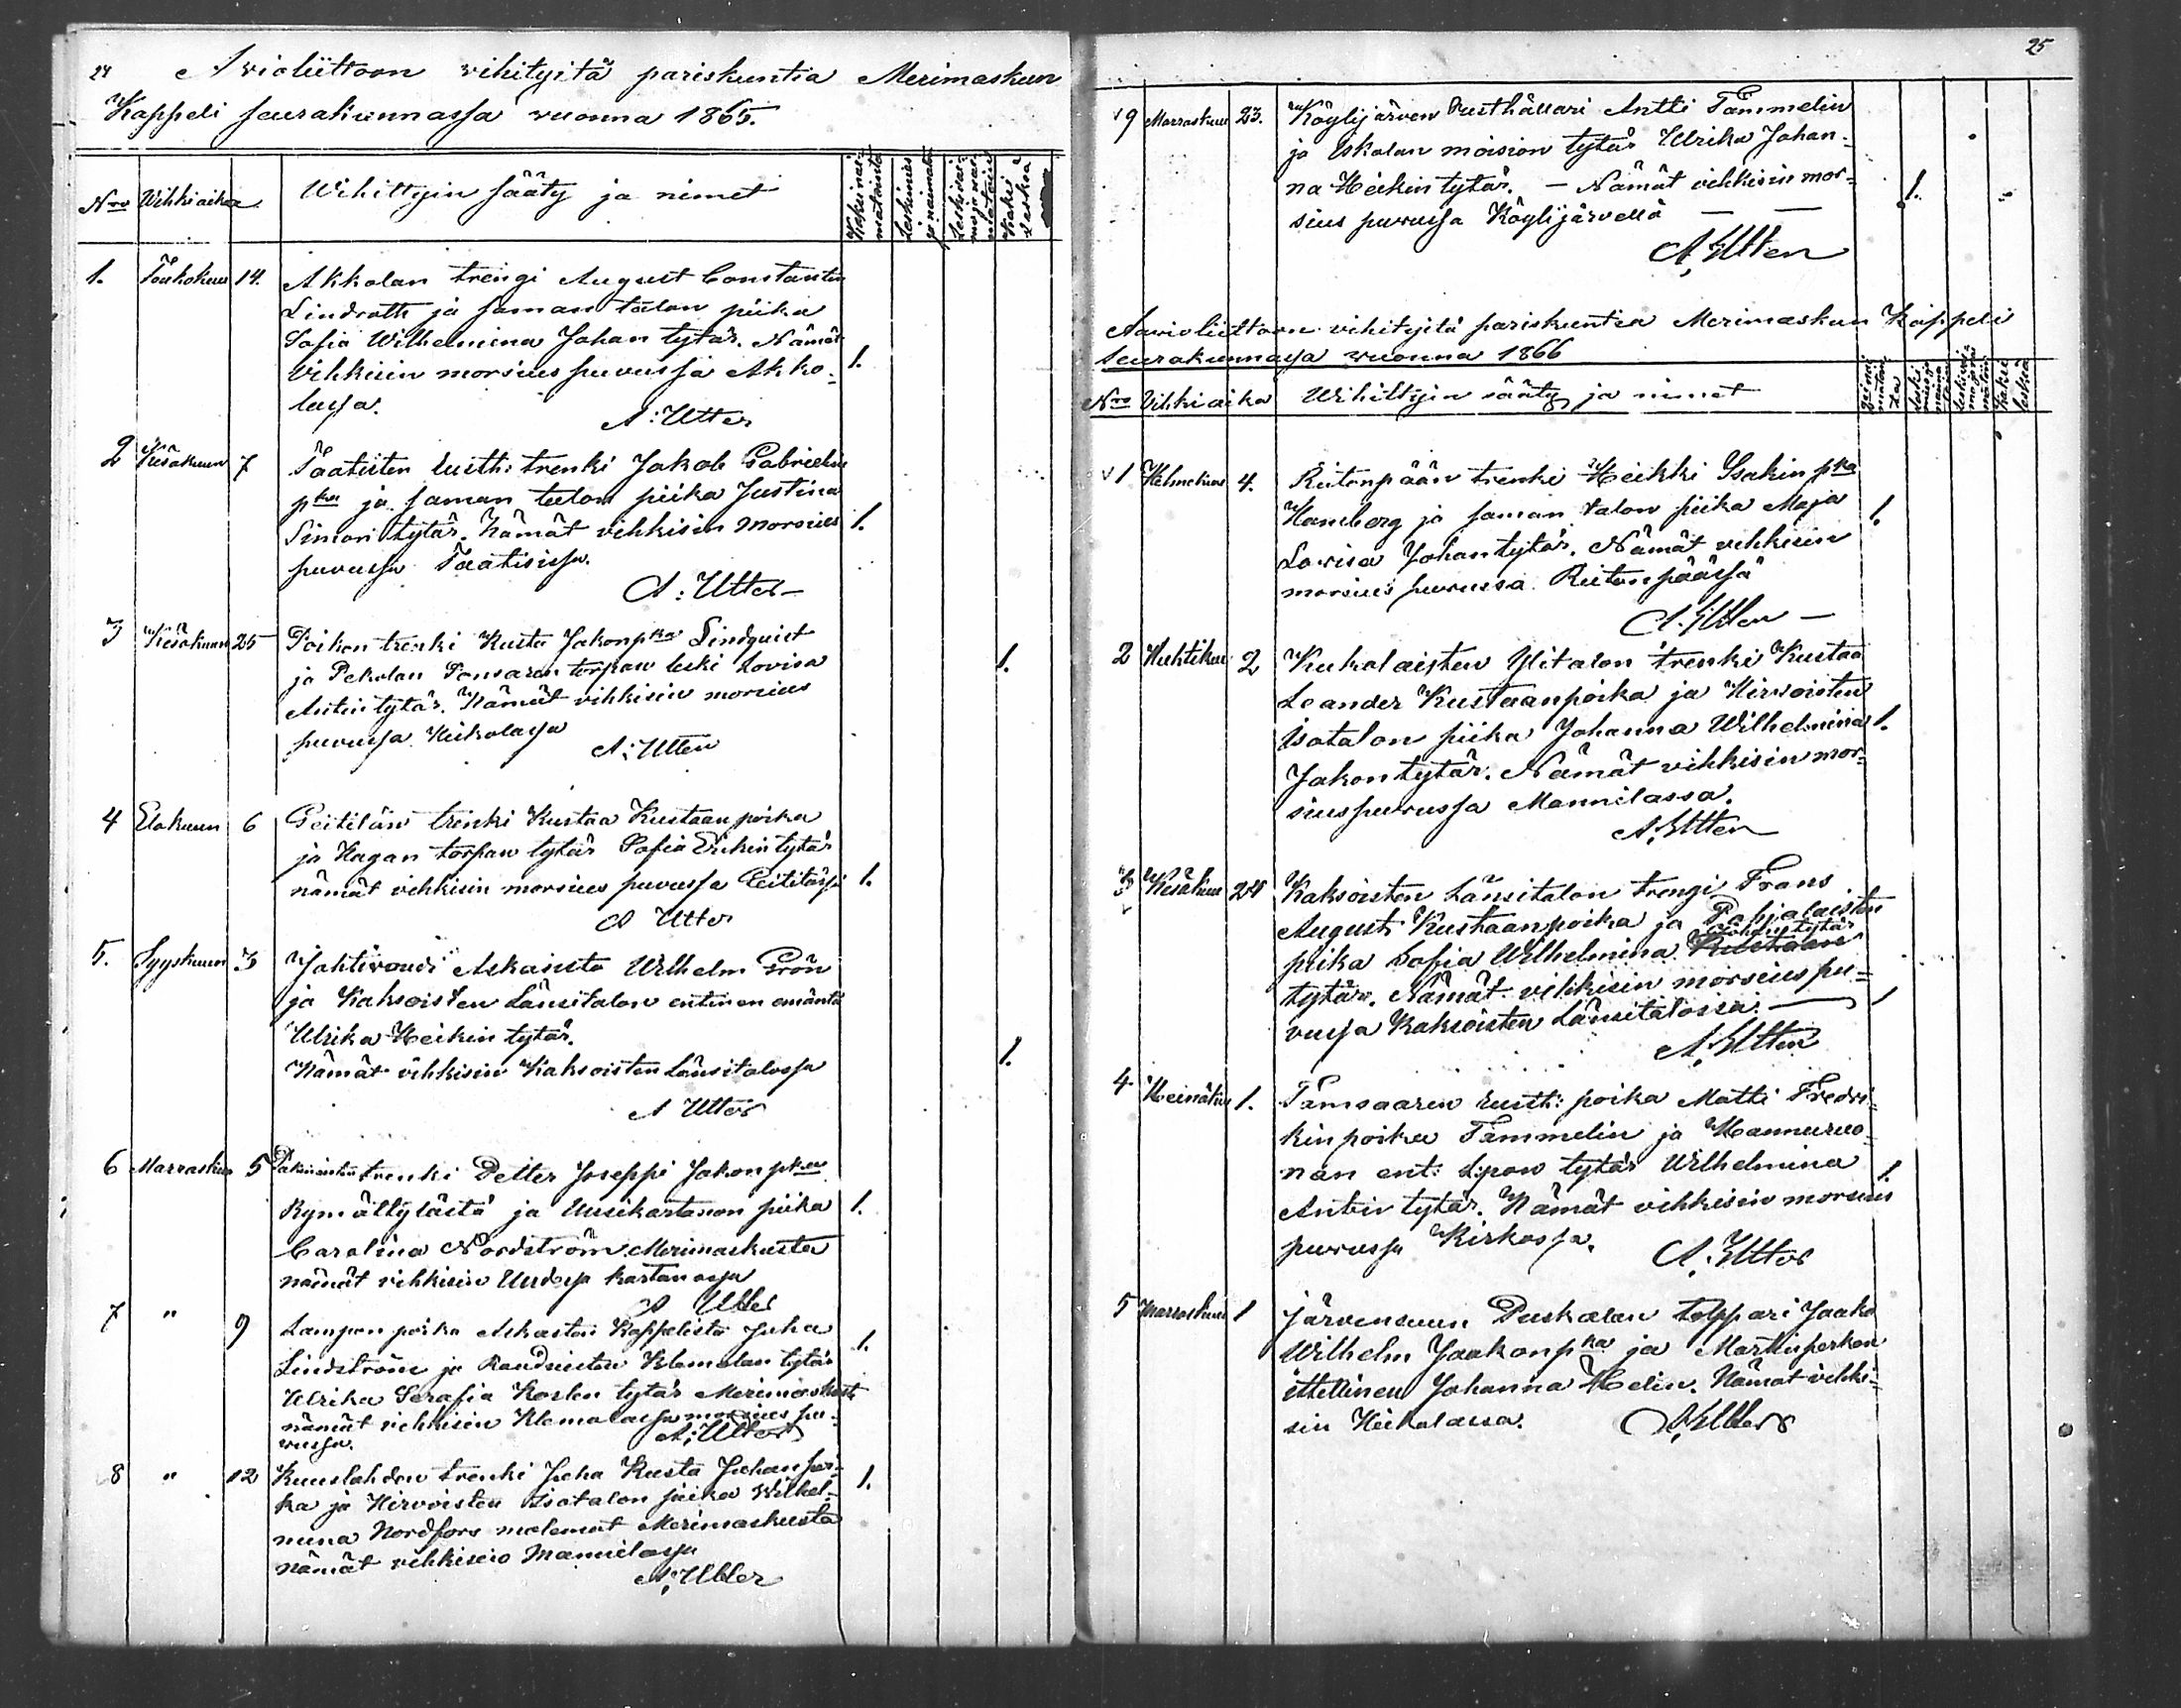 24 Avioliittoon vihityitä pariskuntia Merimaskun
Kappeli seurakunnassa vuonna 1865.
Nro Vihkiaika Wihittyin sääty ja nimet
1. Toukokuu 14. Akkolan trengi August Constantin
Lindroth ja saman talon piika
Sofia Wilhelmina Johan tytär. Nämät
vihkisin morsius puvussa Akko-
lassa. 1.
A: Utter
2 Kesäkuun 7 Taatisten rusth: trenki Jakob Gabrielin
pka ja saman talon piika Justina
Simon tytär. Nämät vihkisin morsius 1.
puvussa Taatisissa.
A: Utter
3 Kesäkuun 25 Poikon trenki Kusta Jakonpka Lindquist
ja Pekolan torpan leski Lovisa 1.
Antin tytär. Nämät vihkisin morsius
puvussa Keikolassa
A: Utter
4 Elokuun 6 Peitilän trenki Kustaa Kustaanpoika
ja Hagan torpan tytär Sofia Erikin tytär
nämät vihkisin morsius puvussa Peitilässä 1.
A Utter
5. Syyskuun 3 Jahtivouti Askaisista Wilhelm Grön
ja Kaksoisten Länsitalon entinen emäntä
Ulrika Heikin tytär.
Nämät vihkisin Kaksoisten Länsitalossa 1.
A Utter
6 Marraskuu 5 trenki Petter Joseppi Jakon pka
Rymättylästä ja Uusikartanon piika 1.
Carolina Nordström Merimaskusta
nämät vihkisin Uudessa kartanossa
A Utter
7 " 9 Lampun poika Askaisten Kappelista Juha
Lindström ja Raudaisten Klemolan tytär 1.
Ulrika Serafia tytär Merimaskusta
nämät vihkisin Klemolassa morsius pu-
vussa. A: Utter
8 " 12 Kuuslahden trenki Juha Kusta Juhanpoi-
ka ja Hirvoisten Isotalon piika Wilhel- 1.
mina Nordfors molemat Merimaskusta
nämät vihkisin Mannilassa
A: Utter
25
9 Marraskuu 23. Köylijärven Rusthållari Antti Tammelin
ja Iskolan moision tytär Ulrika Johan-
na Heikin tytär. – Nämät vihkisin mor- 1.
sius puvussa Köylijärvellä
A: Utter
Aavioliittoon vihityitä pariskuntia Merimaskun Kappeli
seurakunnassa vuonna 1866
Nro Vihkiaika Wihittyin sääty ja nimet
1 Helmikuu 4. Riitonpään trenki Heikki Isakin pka
Hamberg ja saman talon piika Maja 1.
Lovisa Johan tytär. Nämät vihkisin
morsius puvussa Riitonpäässä
A. Utter
2 Huhtikuu 2 Kukolaisten Ylitalon trenki Kustaa
Leander Kustaanpoika ja Hirvoisten
isotalon piika Johanna Wilhelmina 1.
Jakon tytär. Nämät vihkisin mor-
siuspuvussa Mannilassa.
A. Utter
3 Kesäkuu 24 Kaksoisten Länsitalon trengi Frans
August Kustaanpoika ja Pohjalaisten
Johan tytär
piika Sofia Wilhelmina Kustaan
tytär. Nämät vihkisin morsius pu-
vussa Kaksoisten Länsitalossa. 1
A. Utter
4 Heinäkuu 1. Tamsaaren rusth: poika Matti Fredri-
kin poika Tammelin ja Hannuruo-
nan ent: tytär Wilhelmina 1
Antin tytär. Nämät vihkisin morsius
puvussa Kirkossa.
A. Utter
5 Marraskuu 1 Järvensuun Puskalan torppari Jaako
Wilhelm Jaakonpka ja Marttinperkon
ittellinen Johanna Helin. Nämät vihki-
sin Heikolassa. A. Utter